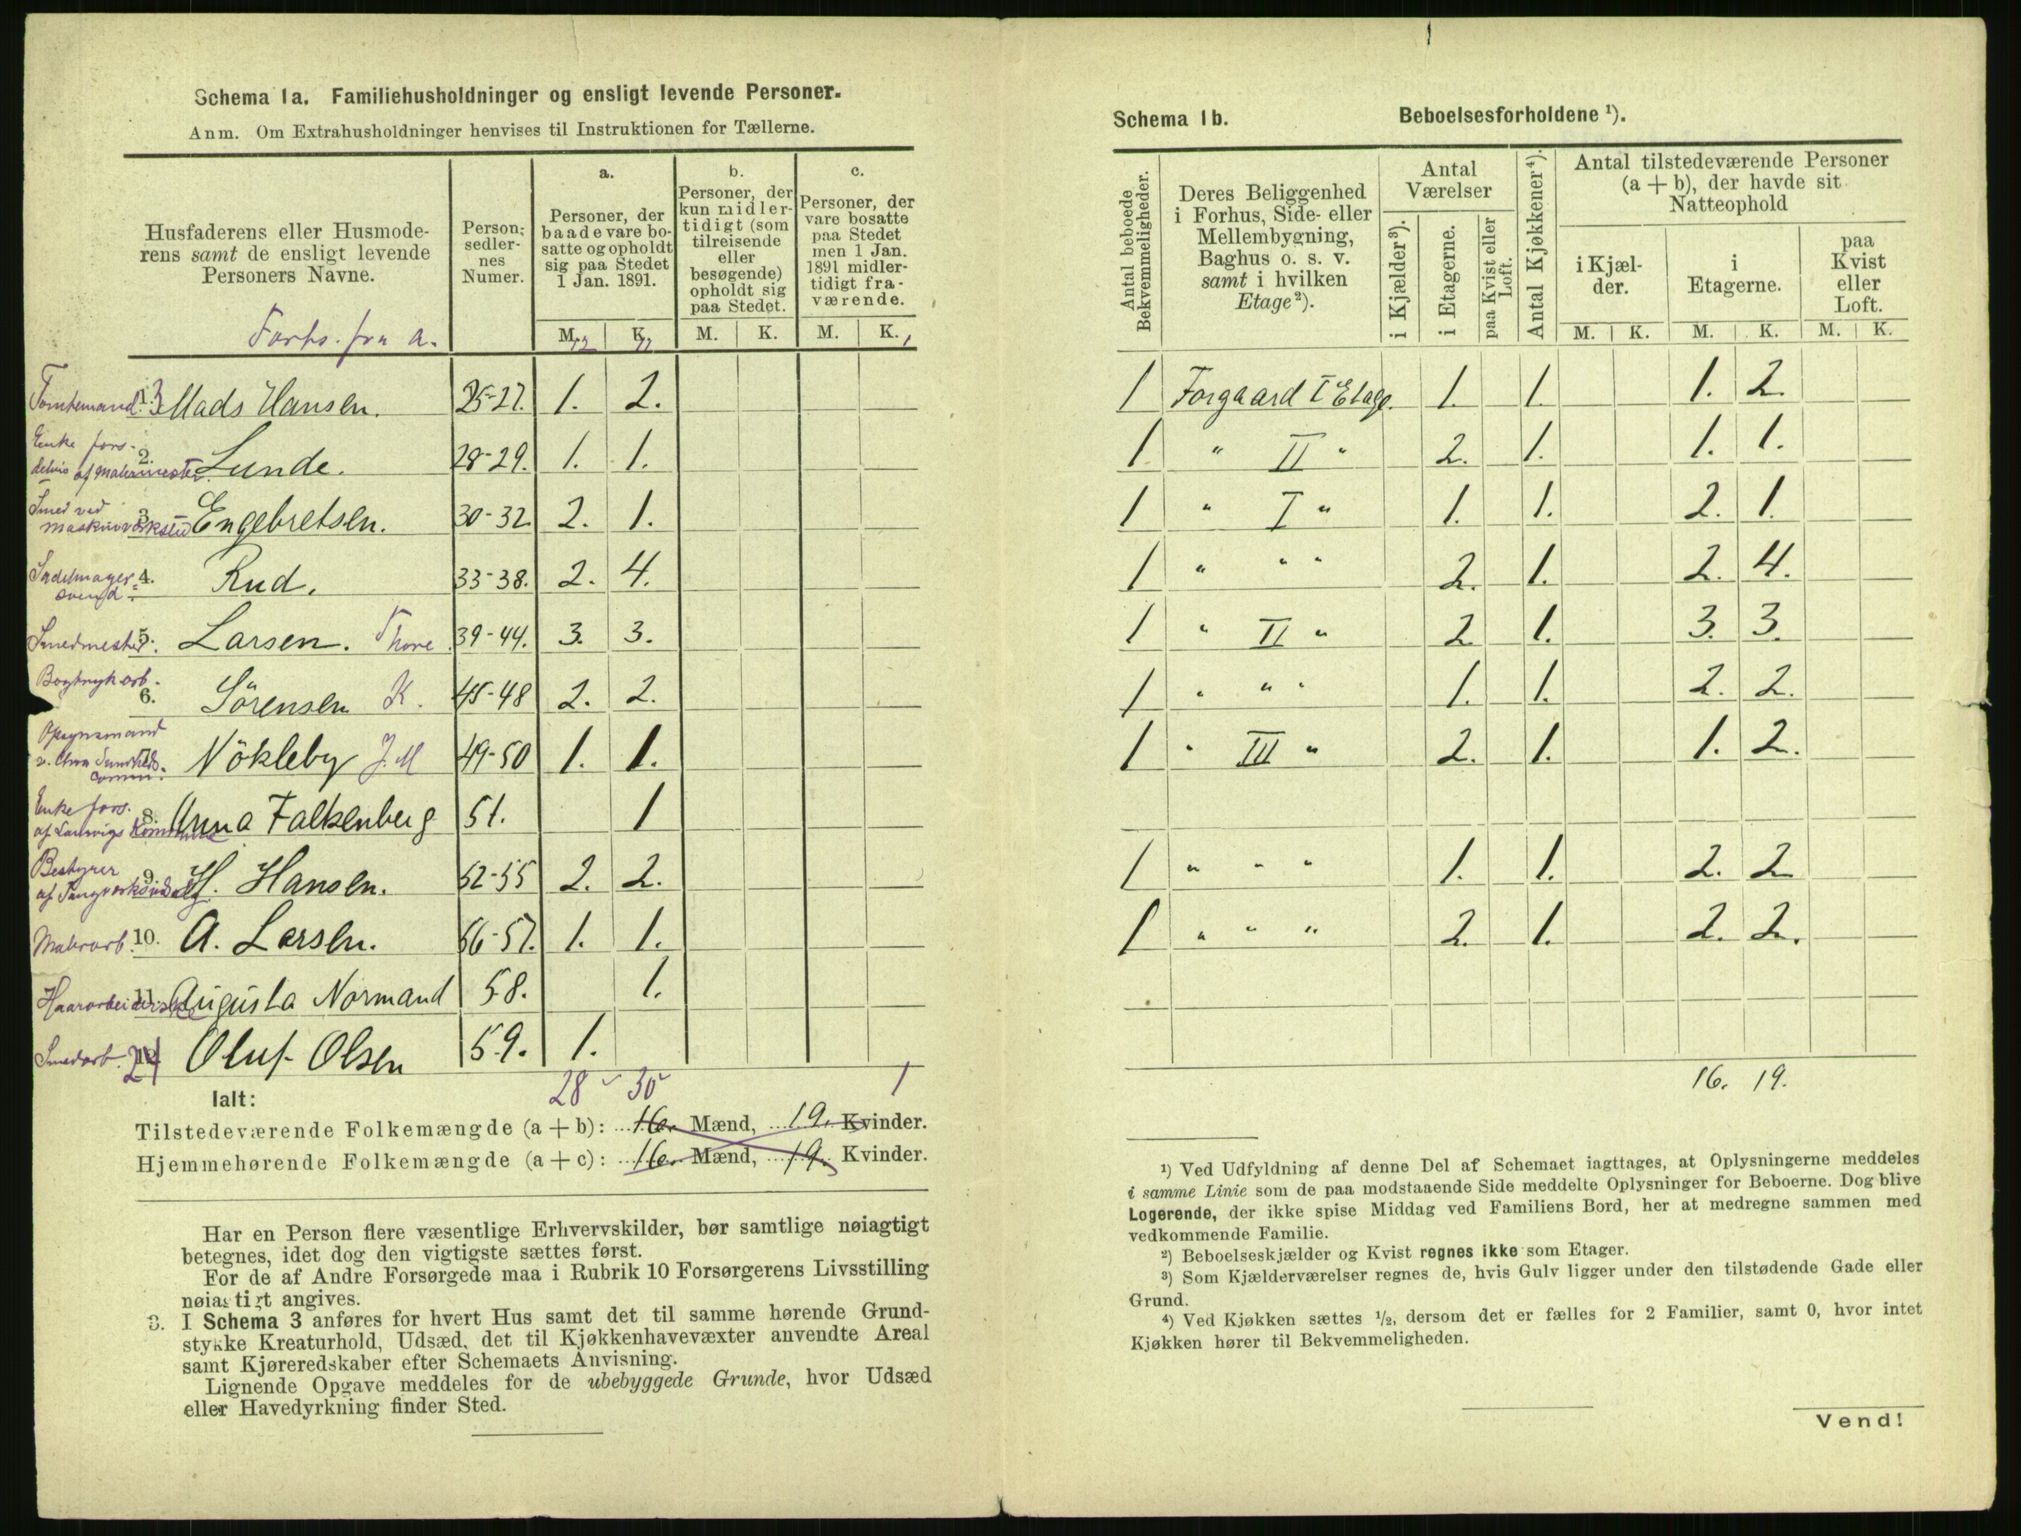 Schema 1a. Familiehusholdninger og ensligt levende Personer.
Anm. Om Extrahusholdninger henvises til Instruktionen for Tællerne.
Husfaderens eller Husmoderens samt de ensligt levende Personers Navne.
Forts. fra a.
Person-sedler-nes Numer.
a. Personer, der baade vare bosatte og opholdt sig paa Stedet 1 Jan. 1891.
b. Personer, der kun midlertidigt (som tilreisende eller besøgende) opholdt sig paa Stedet.
c. Personer, der vare bosatte paa Stedet men 1 Jan. 1891 midlertidigt fraværende.
M. K. M. K. M. K.
12 11 1
Tomtemand 13 Mads Hansen. 25-27. 1. 2.
Enke fors. delvis af Malermester 2. Lunde. 28-29. 1. 1.
Smed ved maskinværksted 3. Engebretsen. 30-32. 2. 1.
Sadelmagersvend 4. Rud. 33-38. 2. 4.
Smedmester 5. Larsen. Thore 39-44. 3. 3.
Bogtrykarb. 6. Sörensen K. 45-48 2. 2.
Opsynsmand 7. Nökleby J. M 49-50 1. 1.
Enke fors. af Laurvigs Kommune 8. Anna Falkenberg 51. 1
Bestyrer 9. H. Hansen. 52-55 2. 2.
Malerarb. 10. A. Larsen. 56-57. 1. 1.
Haararbeiderske 11. Augusta Normand 58. 1.
Smedarb. 24 Oluf Olsen 59. 1.
28 30 1
Ialt:
Tilstedeværende Folkemængde (a + b): 16. Mænd, 19. Kvinder.
Hjemmehørende Folkemængde (a + c): 16. Mænd, 19. Kvinder.
Har en Person flere væsentlige Erhvervskilder, bør samtlige nøiagtigt
betegnes, idet dog den vigtigste sættes først.
For de af Andre Forsørgede maa i Rubrik 10 Forsørgerens Livsstilling
nøiagtigt angives.
3. I Schema 3 anføres for hvert Hus samt det til samme hørende Grund-
stykke Kreaturhold, Udsæd, det til Kjøkkenhavevæxter anvendte Areal
samt Kjøreredskaber efter Schemaets Anvisning.
Lignende Opgave meddeles for de ubebyggede Grunde, hvor Udsæd
eller Havedyrkning finder Sted.
Schema 1b. Beboelsesforholdene ¹).
Antal beboede Bekvemmeligheder.
Deres Beliggenhed i Forhus, Side- eller Mellembygning, Baghus o. s. v. samt i hvilken Etage ²).
Antal Værelser
i Kjælder ³). i Etagerne. paa Kvist eller Loft.
Antal Kjøkkener ⁴).
Antal tilstedeværende Personer (a + b), der havde sit Natteophold
i Kjælder. i Etagerne. paa Kvist eller Loft.
M. K. M. K. M. K.
1 Forgaard I Etage. 1. 1. 1. 2.
1 " II " 2. 1. 1. 1.
1 " I " 1. 1. 2. 1.
1 " " " 2. 1. 2. 4.
1 " II " 2 1. 3. 3.
1 " " " 1. 1. 2. 2.
1 " III " 2. 1. 1. 2.
1 " " " 1. 1. 2. 2
1 " " " 2. 1. 2. 2.
16. 19.
¹) Ved Udfyldning af denne Del af Schemaet iagttages, at Oplysningerne meddeles
i samme Linie som de paa modstaaende Side meddelte Oplysninger for Beboerne. Dog blive
Logerende, der ikke spise Middag ved Familiens Bord, her at medregne sammen med
vedkommende Familie.
²) Beboelseskjælder og Kvist regnes ikke som Etager.
³) Som Kjælderværelser regnes de, hvis Gulv ligger under den tilstødende Gade eller
Grund.
⁴) Ved Kjøkken sættes ½, dersom det er fælles for 2 Familier, samt 0, hvor intet
Kjøkken hører til Bekvemmeligheden.
Vend!